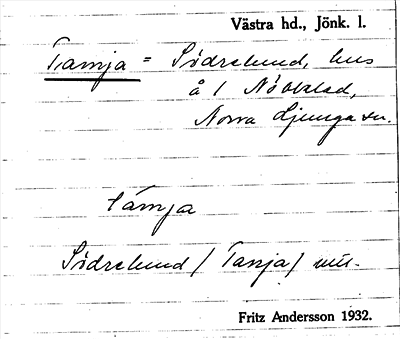 Västra hd., Jönk. l.
Tamja = Södrelund, hus
å 1 Nöbbelad,
Norra Ljunga sn.
támja
Södrelund / Tamja /
Fritz Andersson 1932.